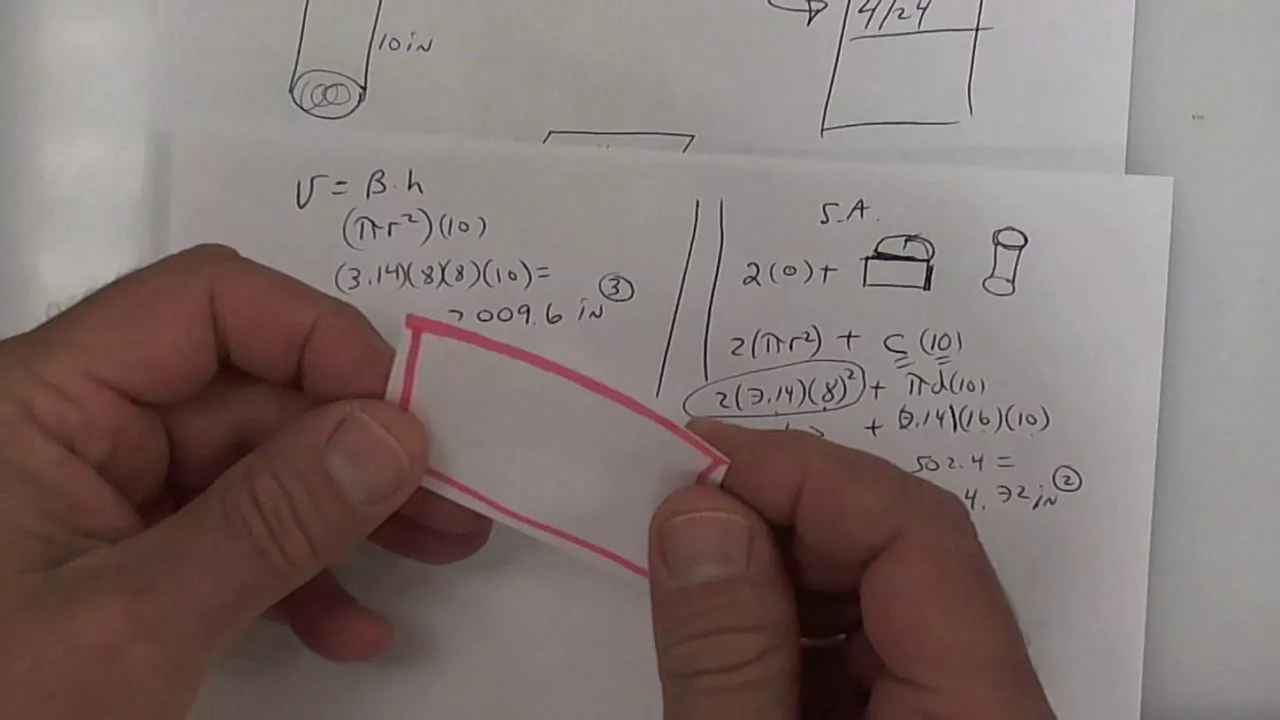 10 iN
4/24
V = B.h
(πr²)(10)
(3.14)(8)(8)(10)=
2009.6 iN ③
S.A.
2(0)+
2(πr²) + C (10)
2(3.14)(8)² + πd(10)
+ (3.14)(16)(10)
502.4 =
4.32 iN ②